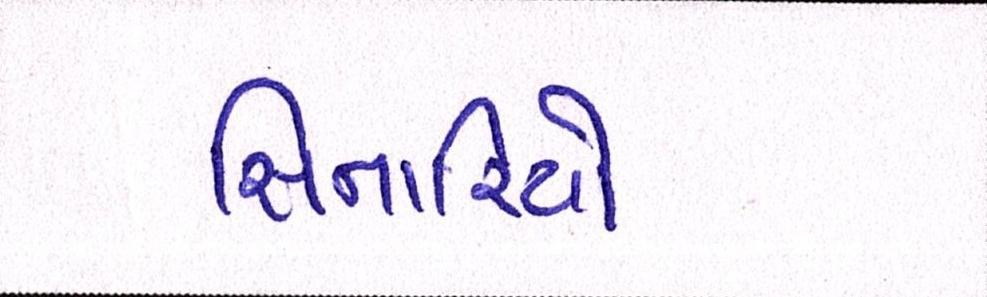 સિનારિયો